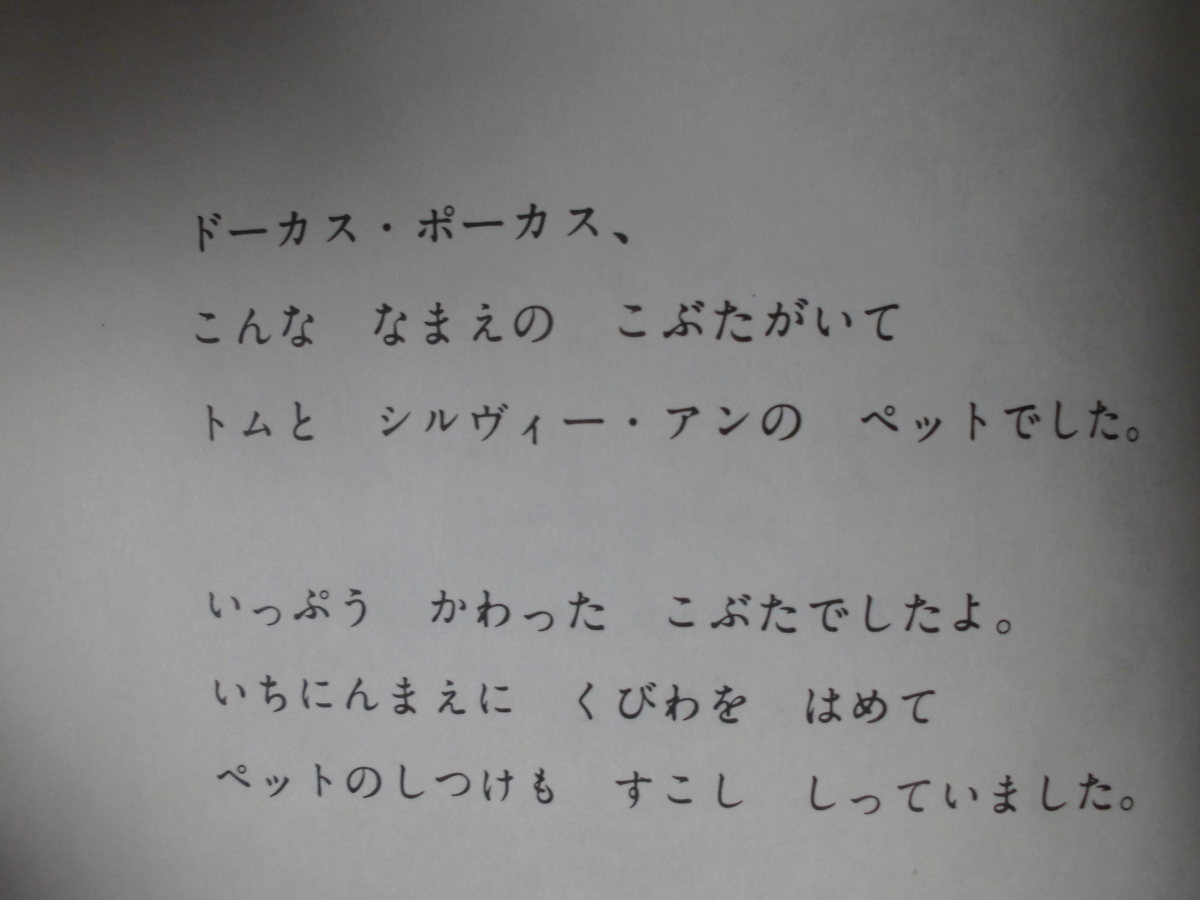 ドーカス・ポーカス、
こんな　なまえの　こぶたがいて
トムと　シルヴィー・アンの　ペットでした。
いっぷう　かわった　こぶたでしたよ。
いちにんまえに　くびわを　はめて
ペットのしつけも　すこし　しっていました。